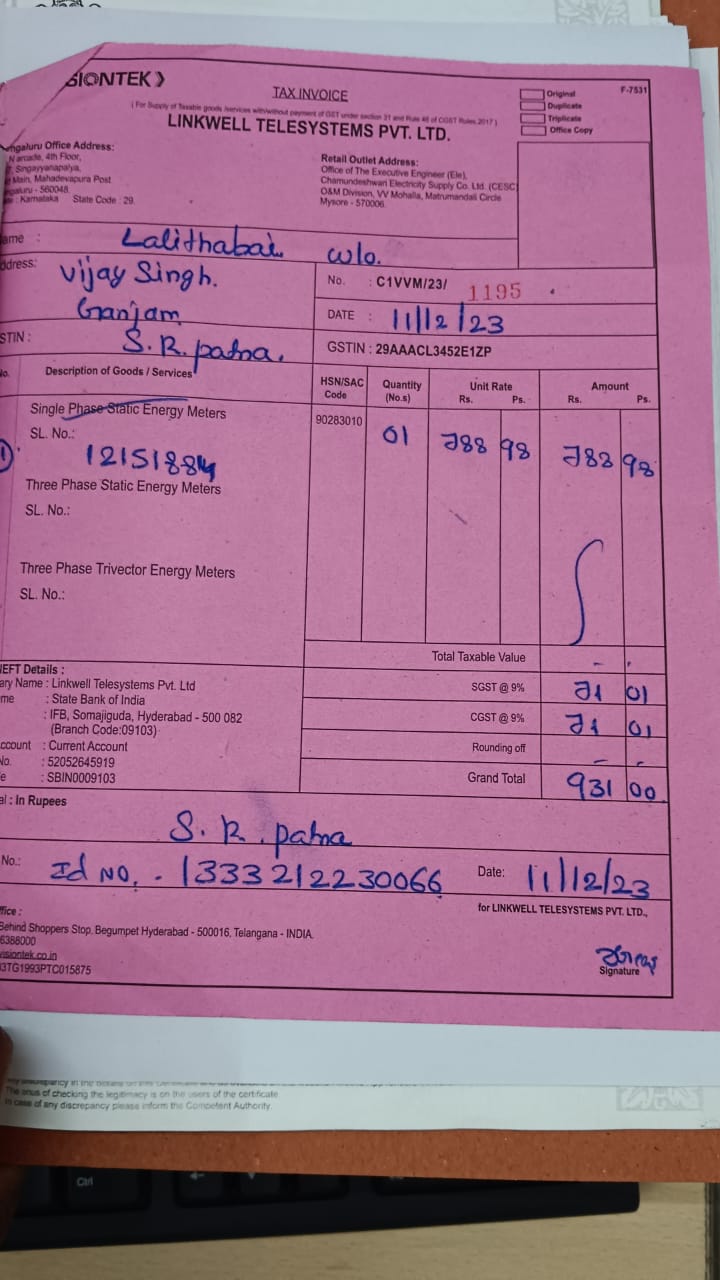 SIONTEK
TAX INVOICE
(For Supply of Taxable goods /services with/without payment of GST under section 31 and Rule 46 of CGST Rules, 2017)
LINKWELL TELESYSTEMS PVT. LTD.
Original
Duplicate
Triplicate
Office Copy
F-7531
engaluru Office Address:
N arcade, 4th Floor,
Singayyanapalya,
Main, Mahadevapura Post
galuru - 560048.
Karnataka State Code : 29.
Retail Outlet Address:
Office of The Executive Engineer (Ele),
Chamundeshwari Electricity Supply Co. Ltd. (CESC
O&M Division, VV Mohalla, Matrumandali Circle
Mysore - 570006.
ame : Lalithabai w/o.
ddress: Vijay Singh.
Ganjam
S.R.patna.
No. : C1VVM/23/ 1195
DATE : 11/12/23
STIN :
GSTIN : 29AAACL3452E1ZP
No. Description of Goods / Services HSN/SAC Code Quantity (No.s) Unit Rate Rs. Ps. Amount Rs. Ps.
Single Phase Static Energy Meters 90283010 01 788 98 788 98
SL. No.:
1) 12151884
Three Phase Static Energy Meters
SL. No.:
Three Phase Trivector Energy Meters
SL. No.:
Total Taxable Value - -
EFT Details :
ary Name : Linkwell Telesystems Pvt. Ltd
me : State Bank of India
: IFB, Somajiguda, Hyderabad - 500 082
(Branch Code:09103)
ccount : Current Account
No. : 52052645919
e : SBIN0009103
SGST @ 9% 71 01
CGST @ 9% 71 01
Rounding off - -
Grand Total 931 00
al : In Rupees
S.R.patna
No.: Id No. - 1333212230066 Date: 11/12/23
for LINKWELL TELESYSTEMS PVT. LTD.,
ffice :
Behind Shoppers Stop, Begumpet Hyderabad - 500016, Telangana - INDIA.
6388000
visiontek.co.in
3TG1993PTC015875
Signature
The onus of checking the legitimacy is on the users of the certificate.
In case of any discrepancy please inform the Competent Authority.
Ctrl